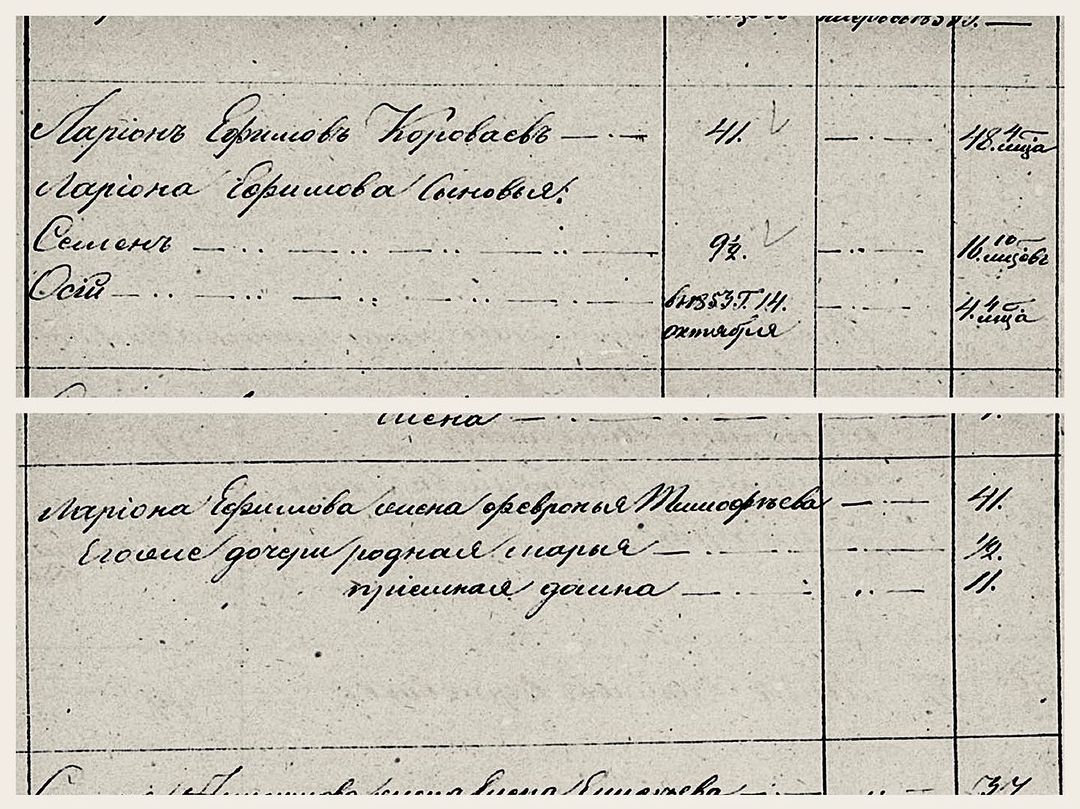 Ларіонъ Ефимовъ Короваевъ — · — 41. — · — 48. 4 мца
Ларіона Ефимова Сыновья:
Семенъ — 9 ½. — 16. 10 мцовъ
Осій — въ 1853 Г. 14. октября — 4. 4 мца
жена
Ларіона Ефимова жена Февронья Тимофѣева — · — 41.
Его же дочери родная Марья — ½.
пріемная Домна — 11.